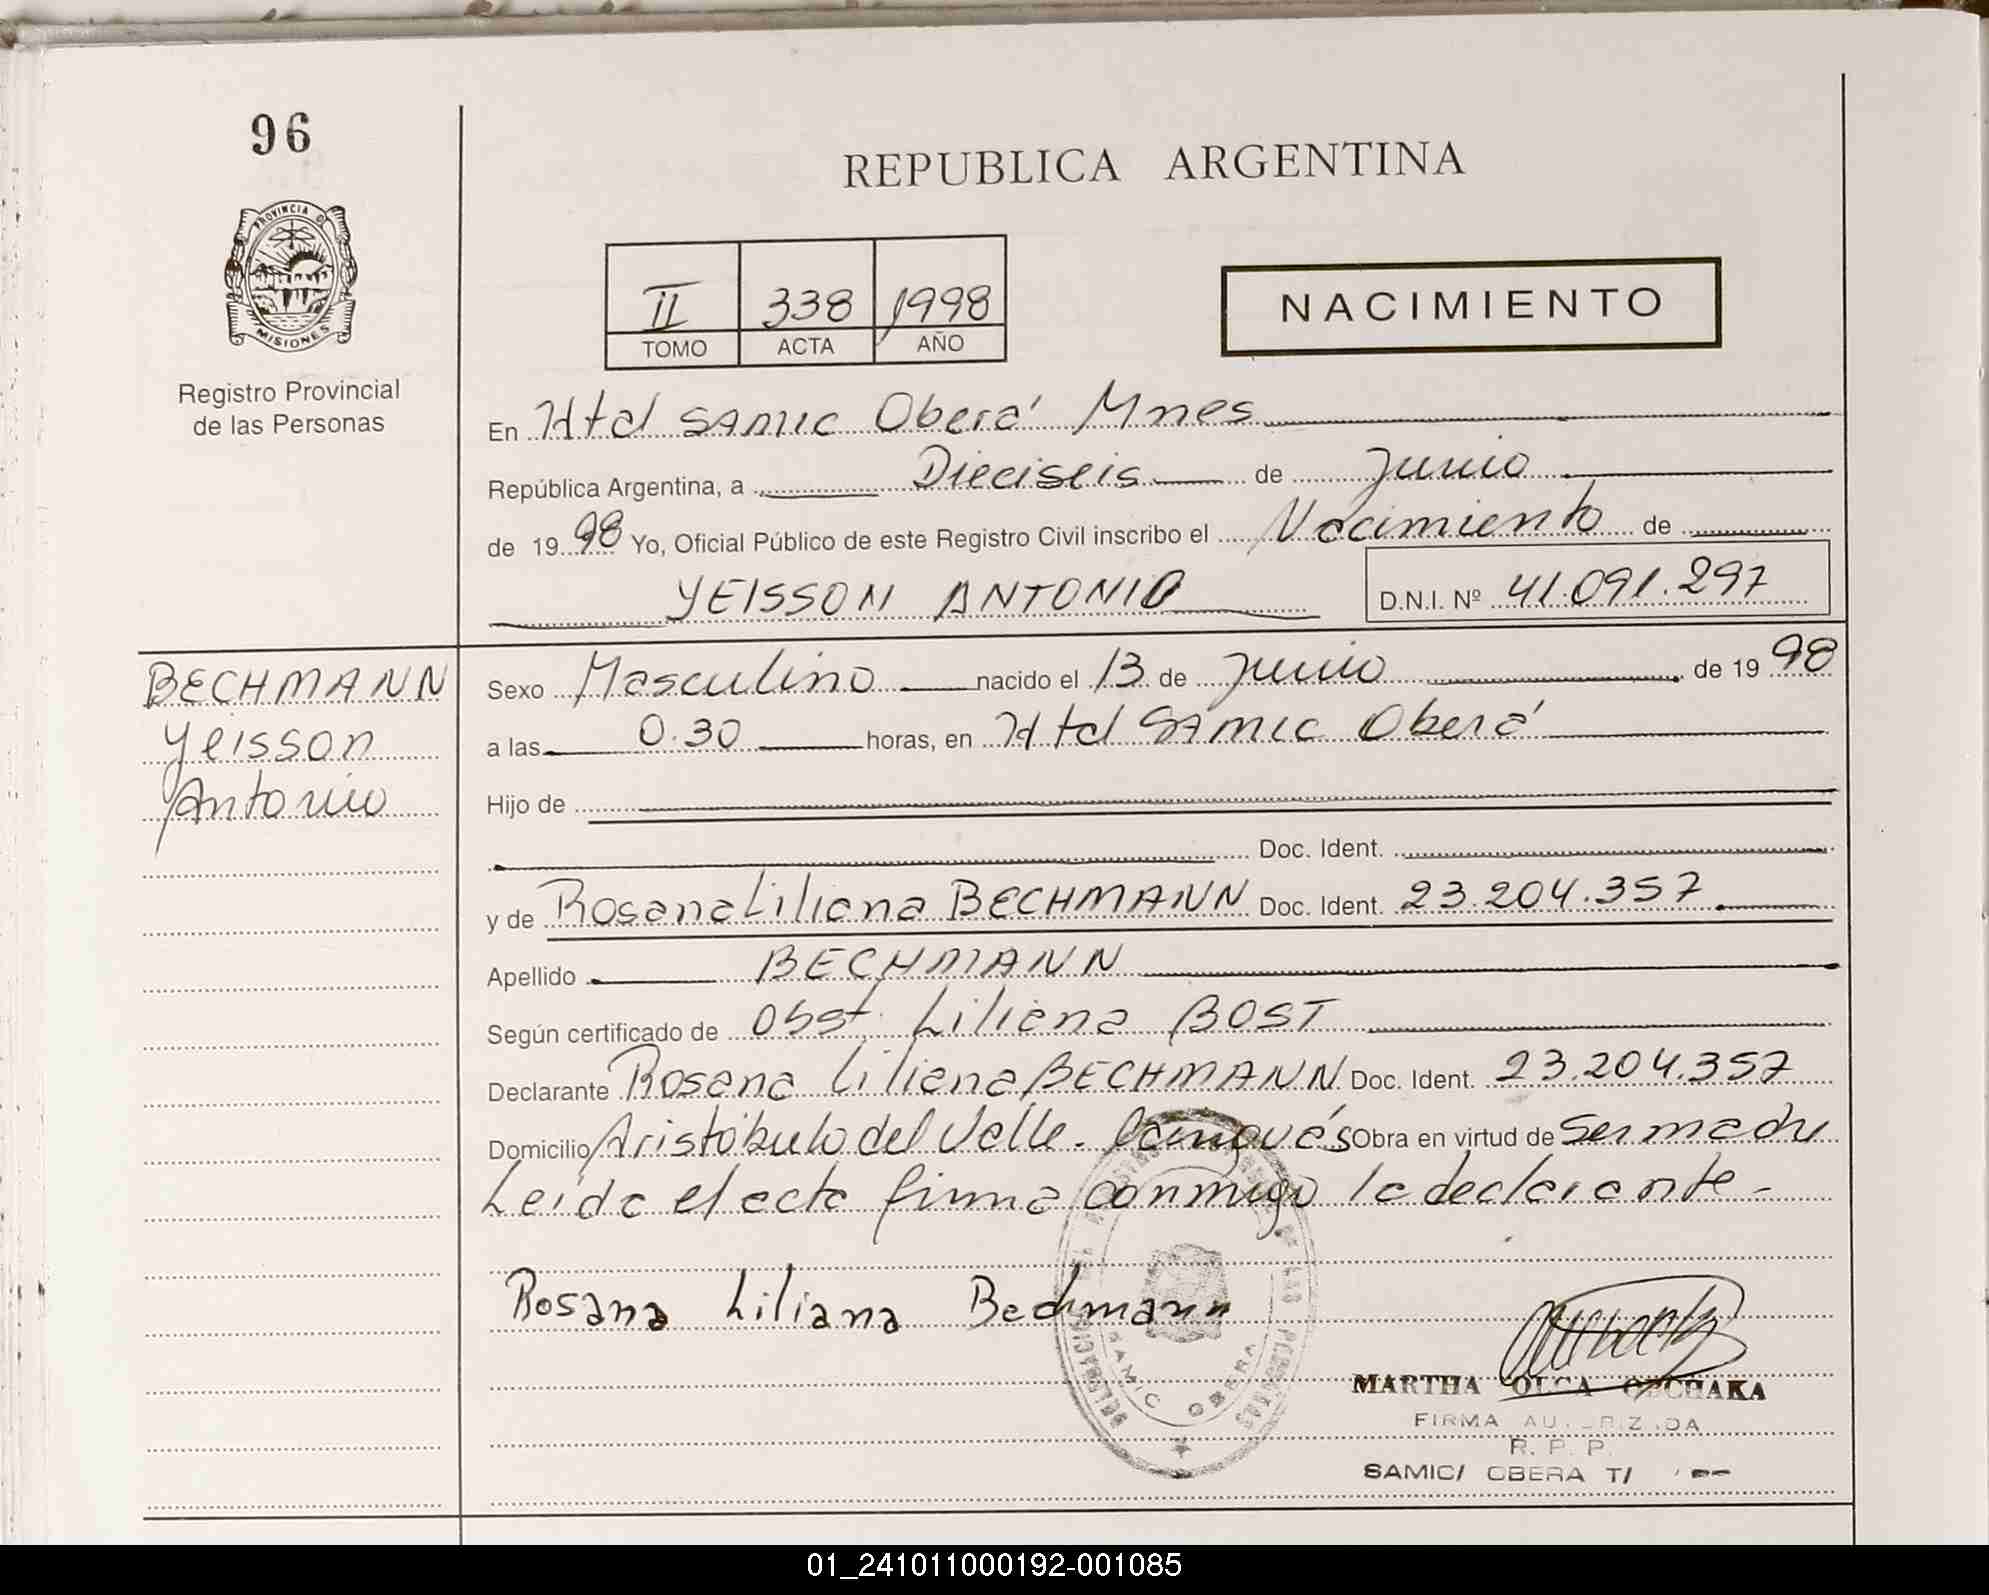 96
REPUBLICA ARGENTINA
PROVINCIA DE
MISIONES
Registro Provincial
de las Personas
II 338 1998
TOMO ACTA AÑO
NACIMIENTO
En Htal SAMIC Oberá Mnes
República Argentina, a Dieciseis de Junio
de 1998 Yo, Oficial Público de este Registro Civil inscribo el Nacimiento de
YEISSON ANTONIO D.N.I. Nº 41.091.297
BECHMANN
Yeisson
Antonio
Sexo Masculino nacido el 13 de Junio de 1998
a las 0.30 horas, en Htal SAMIC Oberá
Hijo de
Doc. Ident.
y de Rosana Liliana BECHMANN Doc. Ident. 23.204.357
Apellido BECHMANN
Según certificado de Obst. Liliana BOST
Declarante Rosana Liliana BECHMANN Doc. Ident. 23.204.357
Domicilio Aristóbulo del Valle. Cainguás Obra en virtud de Ser madre
Leida el acta firma conmigo la declarante -
Rosana Liliana Bechmann
SAMIC OBERA
MARTHA OLGA
FIRMA AUTORIZADA
R. P. P.
SAMIC/ OBERA T/
01_241011000192-001085